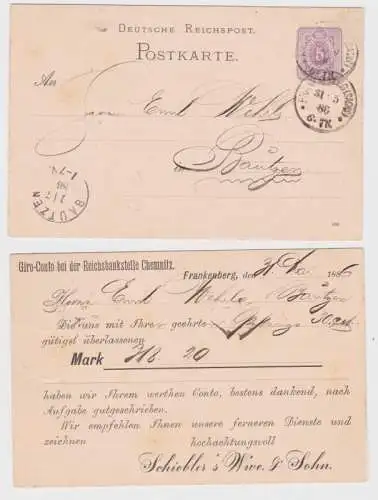 DEUTSCHE REICHSPOST.
POSTKARTE.
5
An
Emil
31 5
86
6-7N.
in Bautzen
BAUTZEN
1/6
86
1-7V.
Giro-Conto bei der Reichsbankstelle Chemnitz.
Frankenberg, den 31. Mai 1886
Herrn Emil Bautzen
Die uns mit Ihrer geehrten
gütigst überlassenen
Mark 20
haben wir Ihrem werthen Conto, bestens dankend, nach
Aufgabe gutgeschrieben.
Wir empfehlen Ihnen unsere ferneren Dienste und
zeichnen hochachtungsvoll
Schiebler's Wwe. & Sohn.